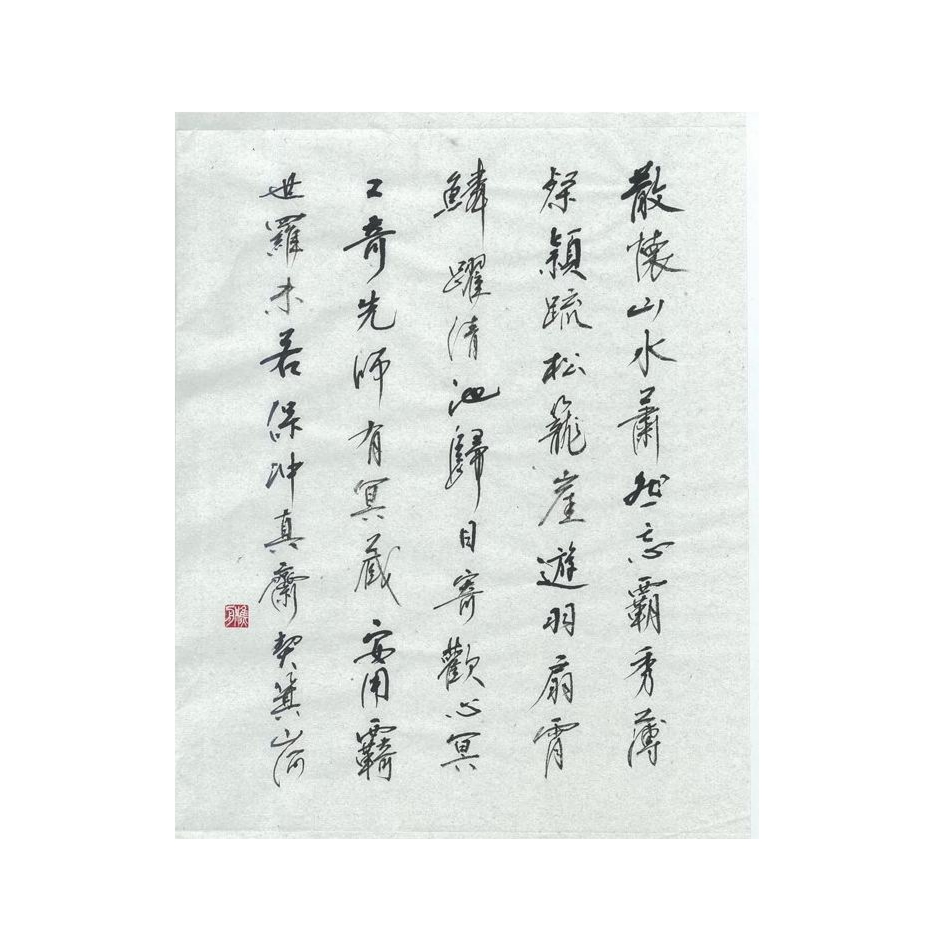 散懷山水蕭然忘覇秀薄
粲穎疏松籠崖遊羽扇霄
鱗躍清池歸目寄歡心冥
二奇先師有冥藏安用覉
世羅未若保冲真齋契箕山阿